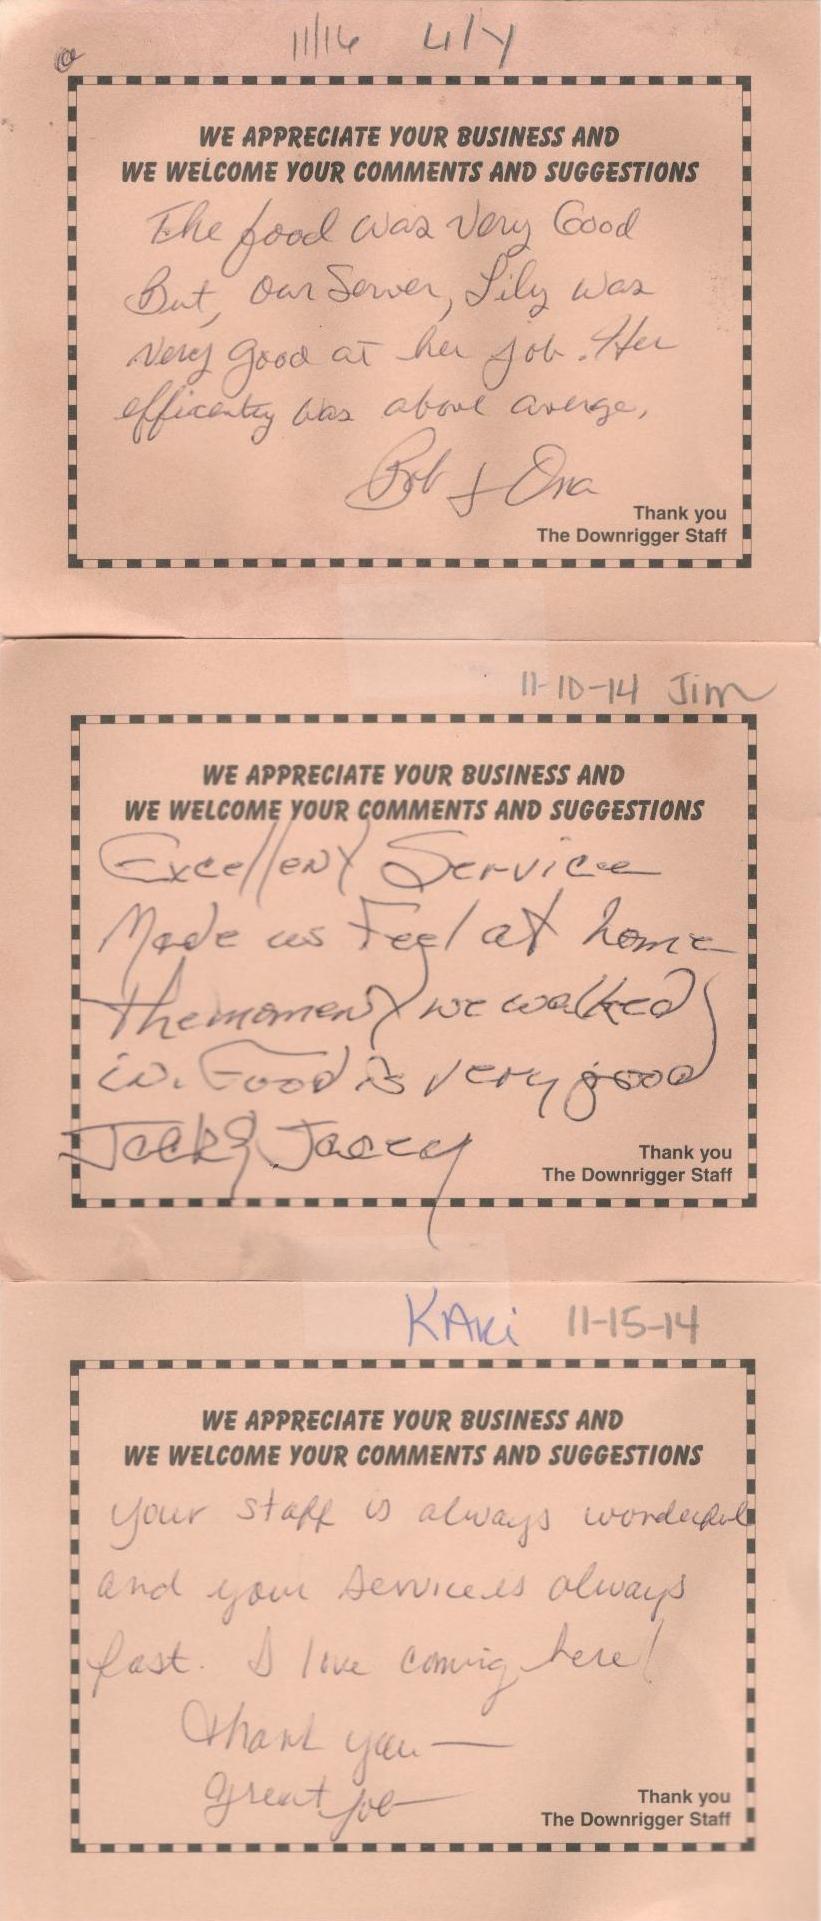 11/16 Lily
WE APPRECIATE YOUR BUSINESS AND
WE WELCOME YOUR COMMENTS AND SUGGESTIONS
The food was Very Good
But, our Server, Lily was
Very Good at her job. Her
efficentcy was above averge,
Bob & Ona
Thank you
The Downrigger Staff
11-10-14 Jim
WE APPRECIATE YOUR BUSINESS AND
WE WELCOME YOUR COMMENTS AND SUGGESTIONS
Excellent Service
Made us Feel at home
the moment we walked
in. Food is very good
Jack &
Thank you
The Downrigger Staff
KARi 11-15-14
WE APPRECIATE YOUR BUSINESS AND
WE WELCOME YOUR COMMENTS AND SUGGESTIONS
Your staff is always wonderful
and your service is always
fast. I love coming here!
Thank you —
great job —
Thank you
The Downrigger Staff